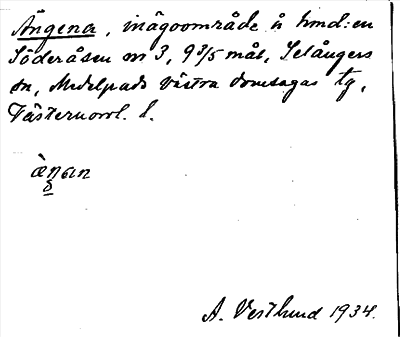 Ängena, inägoområde å hmd: en
Söderåsen nr 3, 9 3/5 mål, Selångers
sn, Medelpads västra domsagas tg,
Västernorrl. l.
A. Vestlund 1934.